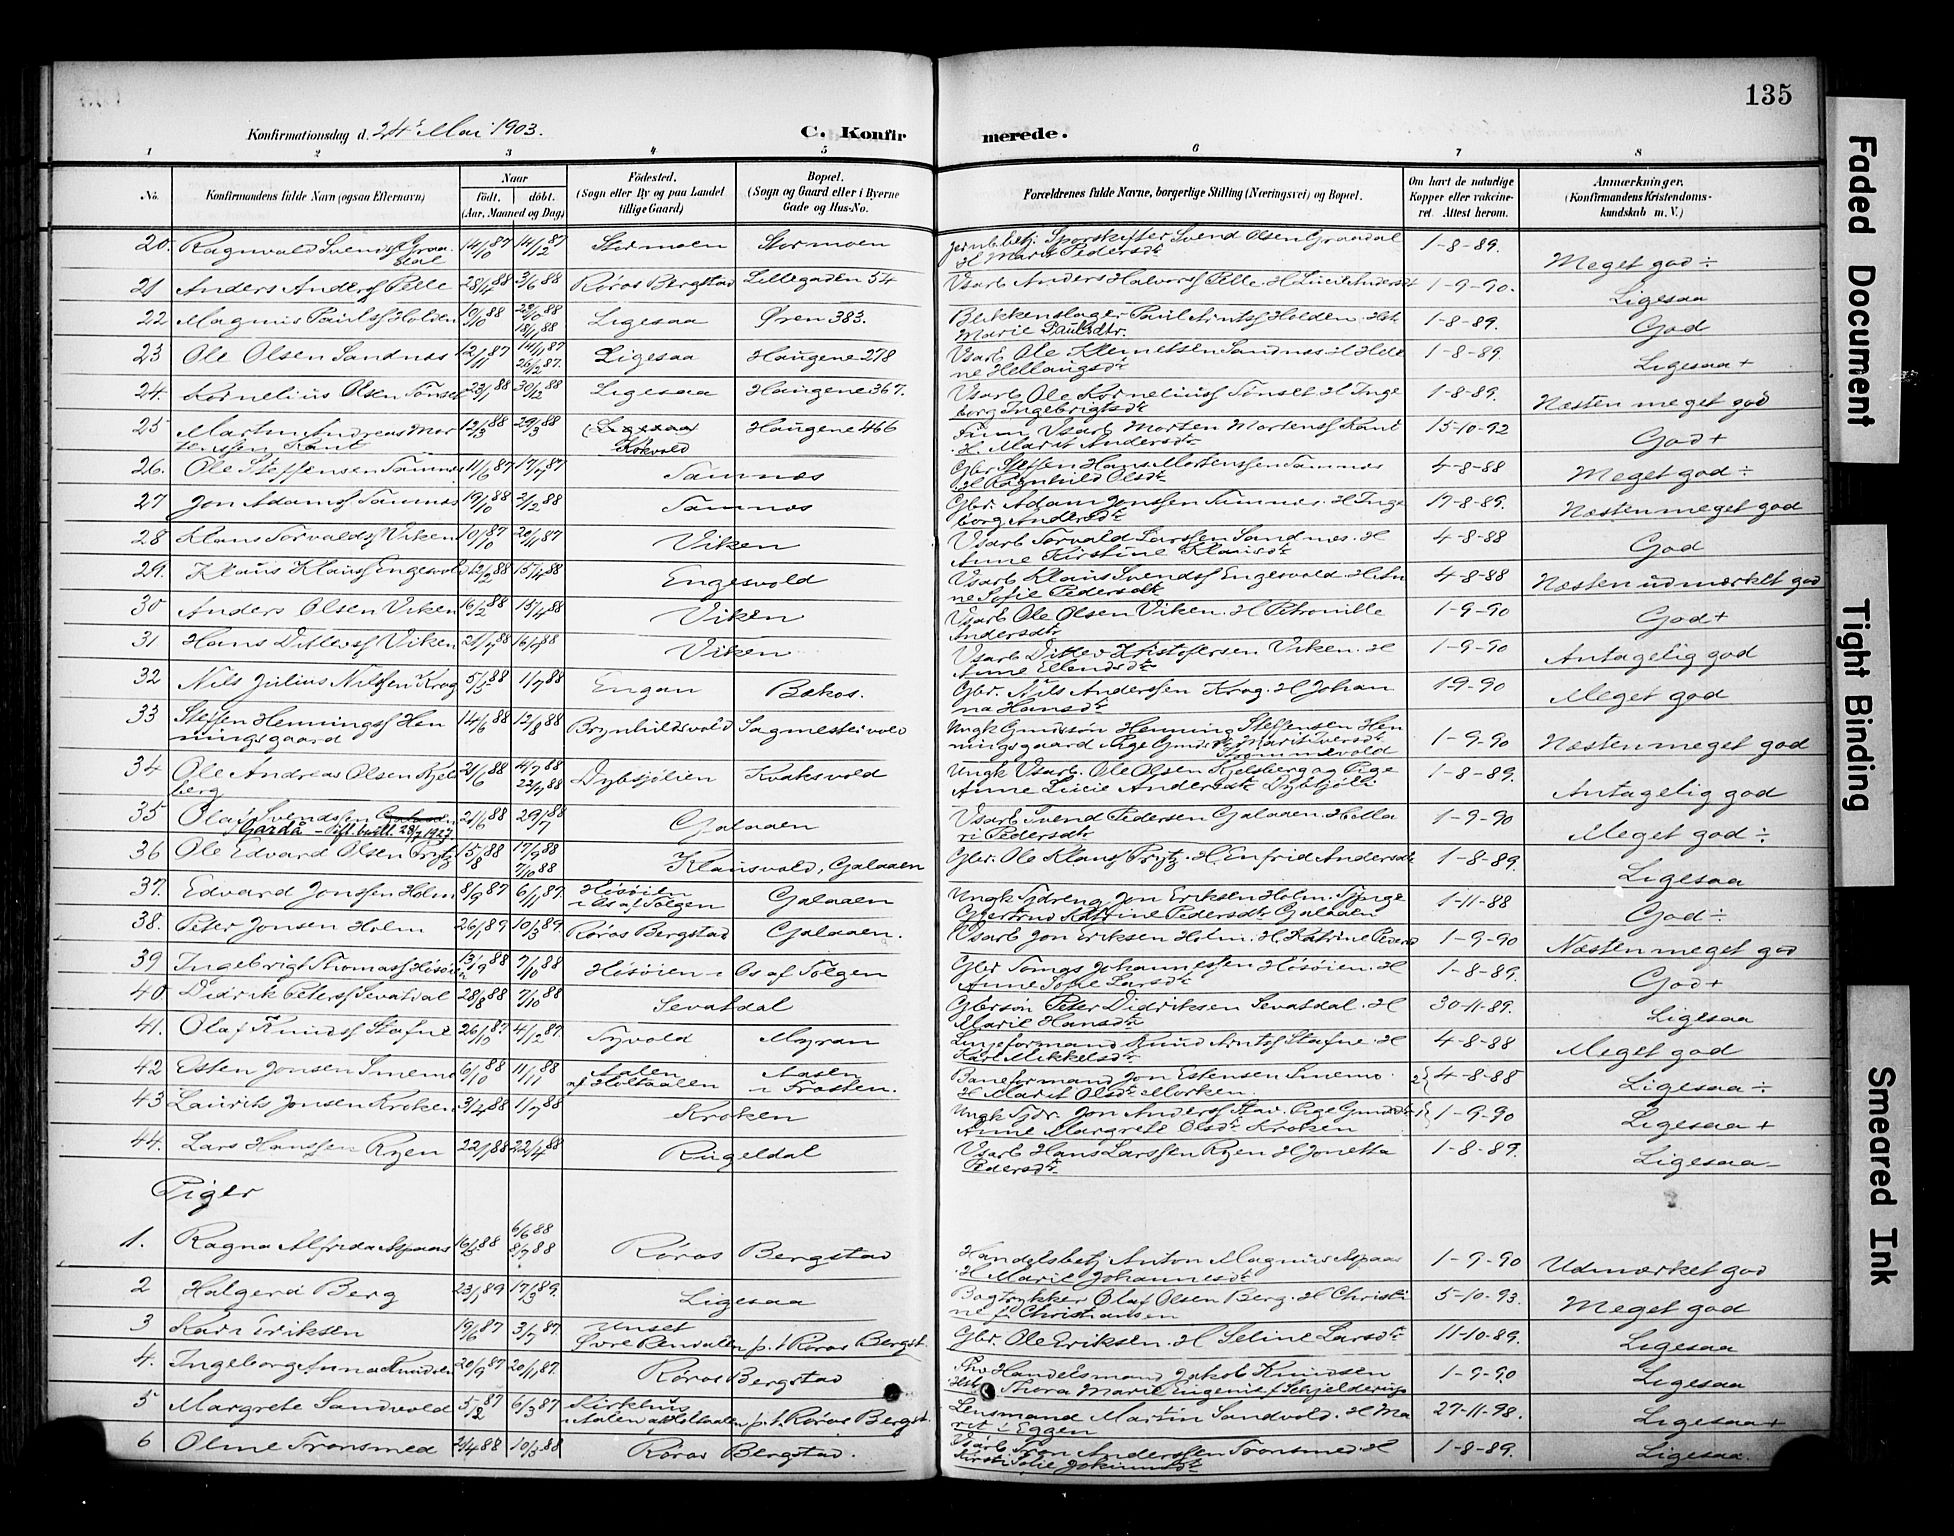 135
Konfirmationsdag d. 24 Mai 1903.
C. Konfirmerede.
1 2 3 4 5 6 7 8
No. Konfirmandens fulde Navn (ogsaa Efternavn) Naar født, døbt. (Aar, Maaned og Dag) Fødested. (Sogn eller By og paa Landet tillige Gaard) Bopæl. (Sogn og Gaard eller i Byerne Gade og Hus-No. Forældrenes fulde Navne, borgerlige Stilling (Næringsvei) og Bopæl. Om havt de naturlige Kopper eller vakcineret. Attest herom. Anmærkninger. (Konfirmandens Kristendomskundskab m. V.)
20. Ragnvald Svends Graadal 14/10 87 14/12 87 Stormoen Stormoen Jernb.betj. Sporskifter Svend Olsen Graadal H Marit Pedersdtr 1-8-89. Meget god ÷
21 Anders Anders Pelle 28/4 88 3/6 88 Røros Bergstad Lillegaden 54 Vsarb Anders Halvors Pelle H Lucie Andersd 1-9-90. Ligesaa
22 Magnus Pauls Holden 10/10 88 Ligesaa Øren 383. Blikkenslager Paul Arnts Holden Hst Marie Paulsdtr. 1-8-89. God
23 Ole Olsen Sandnes 12/11 87 14/11 87 26/12 87. Ligesaa Haugene 278 Vsarb Ole Klemetsen Sandnes H Helene Hellaugsdtr 1-8-89. Ligesaa +
24. Kornelius Olsen Tønset 23/1 88 30/12 88 Ligesaa Haugene 367. Vsarb Ole Kornelius Tønset H Ingeborg Ingebrigtsdtr 1-8-89. Næsten meget god
25 Martin Andreas Mortenssen Kant 12/3 88 29/3 88 (Ligesaa) Kokvold Haugene 466 Vsarb Morten Mortens Kant H. Marit Andersdtr 15-10-92 God +
26. Ole Steffensen Tamnes 11/6 87 17/7 87 Tamnes Gbr Steffen Hans Mortenssen Tamnes H Ragnhild Olsdtr 4-8-88 Meget god ÷
27 Jon Adams Tamnes 19/10 88 2/12 88 Tamnes Gbr. Adam Jonssen Tamnes. H Ingeborg Andersdtr 17-8-89. Næsten meget god
28 Klaus Torvalds Viken 10/10 87 20/11 87 Viken Vsarb Torvald Larssen Sandnes. H Anne Kirstine Klausdtr 4-8-88 God
29. Klaus Klaus Engesvold 12/2 88 15/4 88 Engesvold Vsarb Klaus Svends Engesvold H Anne Sofie Pedersdtr 4-8-88 Næsten udmærket god
30 Anders Olsen Viken 16/2 88 15/4 88 Viken Vsarb Ole Olsen Viken. H Petronille Andersdtr 1-9-90 God +
31 Hans Ditlevs Viken 21/7 88 16/9 88 Viken Vsarb Ditlev Kristofersen Viken. H Anne Ellendsdtr 1-9-90 Antagelig god
32 Nils Julius Nilssen Krog 5/5 88 1/7 88 Engan Bakos. Gbr. Nils Anderssen Krog. H Johanna Hansdtr 1-9-90 Meget god
33 Steffen Hennings Henningsgaard 14/6 88 12/8 88 Brynhildsvold Sagmestervold Ungk Gmdssøn Henning Steffensen Henningsgaard Pige Gmds Marit Iversdtr 1-9-90 Næsten meget god
34 Ole Andreas Olsen Kjelsberg 21/6 88 4/7 88 22/7 88 Dybsjølien Kvaksvold Ungk Vsarb. Ole Olsen Kjelsberg og Pige Anne Lucie Andersdtr Dybsjøli 1-8-89. Antagelig god
35 Olaf Svendsen Galaaen 21/6 88 29/7 88 Galaaen Vsarb Svend Pedersen Galaaen H Mari Pedersdtr 1-9-90 Meget god ÷
Gardå - 28/7 1927
36 Ole Edvard Olsen Prytz 15/8 88 17/9 88 7/10 88 Klausvold, Galaaen Gbr. Ole Klaus Prytz. H. Enfrid Andersdtr 1-8-89. Ligesaa
37. Edvard Jonssen Holm 8/9 87 6/11 87. Hosøien i Os af Tolgen Galaaen Ungk Tjdreng Jon Eriksen Holm. Tjpige Gjertrud Katrine Pedersdtr Galaaen 1-11-88 God ÷
38. Peter Jonsen Holm 26/1 89 10/3 89. Røros Bergstad Galaaen. Vsarb Jon Eriksen Holm. H. Katrine Pedersd 1-9-90 Næsten meget god
39 Ingebrigt Thomas Hosøien 13/9 88 7/10 88 Hosøien i Os af Tolgen Gbr Tomas Johannessen Hosøien. H Anne Sofie Larsdtr 1-8-89. God +
40 Didrik Peters Sevatdal 28/8 88 7/10 88 Sevatdal Gbrsøn Peter Didriksen Sevatdal. H Marie Hansdtr 30-11-89. Ligesaa
41. Olaf Knuds Stafne 26/10 87. 4/12 87. Tyvold Myran Linjeformand Knud Arnts Stafne. H Kari Mikkelsdtr 4-8-88 Meget god
42 Esten Jonsen Smemo 6/10 88 11/11 88 Aalen af Holtaalen Aasen i Frosten. Baneformand Jon Estensen Smemo. H Marit Olsdtr Morken 2 { 4-8-88 Ligesaa ÷
43 Laurits Jonsen Kroken 3/4 88 1/7 88 Kroken Ungk Tjdr. Jon Anders Stav. Pige Gmdsdtr Anne Margrete Olsdtr Kroken 1-9-90 Ligesaa +
44. Lars Hanssen Ryen 22/1 88 22/4 88 Rugeldal Vsarb Hans Larssen Ryen H Jonetta Pedersdtr 1-8-89. Ligesaa -
Piger
1. Ragna Alfrida Aspaas 16/5 88 6/6 88 8/7 88 Røros Bergstad Handelsbetj Anton Magnus Aspaas H Marie Johannesdtr 1-9-90 Udmærket god
2 Halgerd Berg 23/1 89 17/3 89. Ligesaa Bogtrykker Olaf Olsen Berg. H Christine f. Christiansen 5-10-93. Meget god
3 Kari Eriksen 19/6 87 3/7 87. Unset Øvre Rendalen p.t. Røros Bergst. Gbr. Ole Eriksen. H Seline Larsdtr 11-10-89. Ligesaa
4. Ingeborg Anna Knudsen 20/9 87 20/11 87. Røros Bergstad Handelsmand Jakob Knudsen Hst Thora Marie Eugenie f. Schjelderup 1-9-90 Ligesaa
5 Margrete Sandvold 5/2 87 6/3 87 Kirkhus i Aalen af Holtaalen p.t. Røros Bergst. Lensmand Martin Sandvold. H Marit f Eggen 27-11-98. Ligesaa +
6 Olme Tronsmed 2/4 88 10/5 88 Røros Bergstad. Vsarb Tron Anderssen Tronsmed H Sofie 1-8-89. Ligesaa.
Faded Document
Tight Binding
Smeared Ink